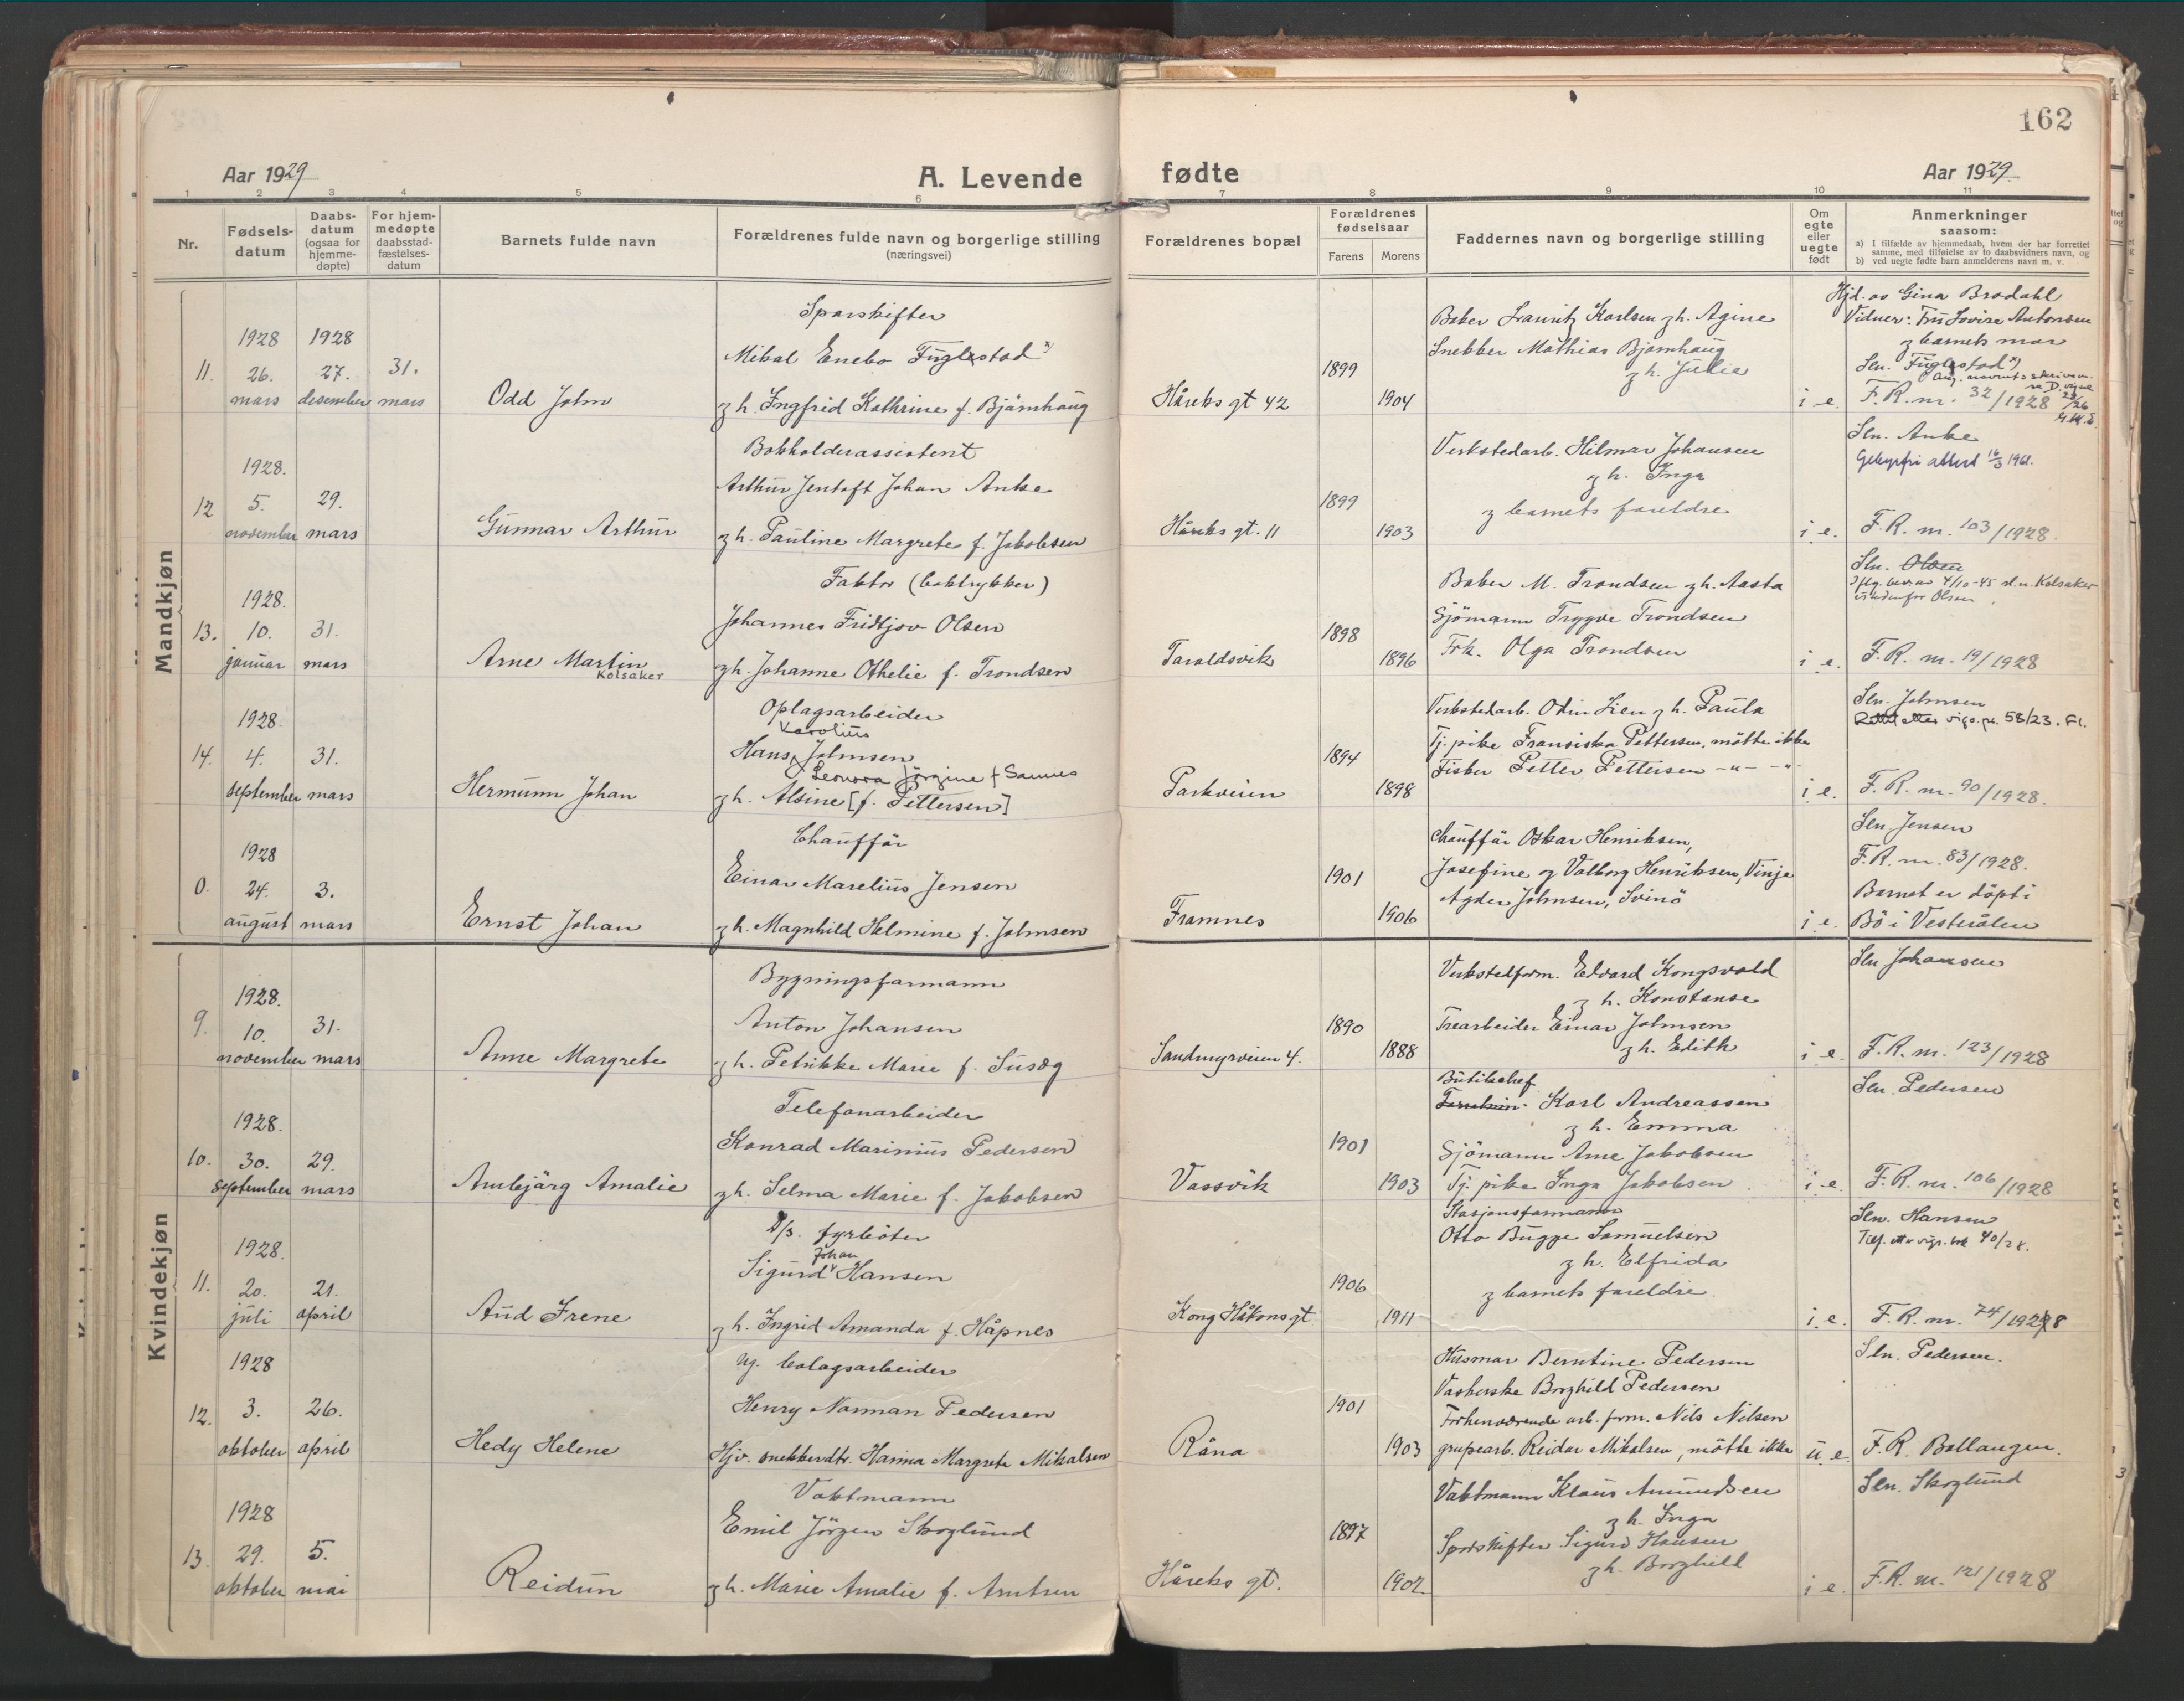 162
Aar 1929
A. Levende fødte
Aar 1929.
1 2 3 4 5 6 7 8 9 10 11
Nr.
Fødsels-
datum
Daabs-
datum
(ogsaa for
hjemme-
døpte)
For hjem-
medøpte
daabsstad-
fæstelses-
datum
Barnets fulde navn
Forældrenes fulde navn og borgerlige stilling
(næringsvei)
Forældrenes bopæl
Forældrenes
fødselsaar
Farens Morens
Faddernes navn og borgerlige stilling
Om
egte
eller
uegte
født
Anmerkninger
saasom:
a) I tilfælde av hjemmedaab, hvem der har forrettet
samme, med tilføielse av to daabsvidners navn, og
b) ved uegte fødte barn anmelderens navn m. v.
Mandkjøn
11.
1928 26. mars
1928 27. desember
31. mars
Odd John
Sporskifter
Mikal Enebo Fuglestad x)
g h. Ingfrid Kathrine f. Bjørnhaug
Håreks gt 42
1899
1904
Baker Lauritz Karlsen g h. Agine
Snekker Mathias Bjørnhaug
g h. Julie
i e.
Hjd. av Gina Brodahl
Vidner: Fru Lovise Antonsen
g barnets mor
Sln. Fuglestad x)
F. R. nr. 32/1928
12
1928. 5. november
29. mars
Gunnar Arthur
Bokholderassistent
Arthur Jentoft Johan Anke
g h. Pauline Margrete f. Jakobsen
Håreks gt. 11
1899
1903
Verkstedarb. Hilmar Johansen
g h. Inga
g barnets foreldre
i e.
Sln. Anke
Gebyrfri attest 16/3 1961.
F. R. nr. 103/1928.
13.
1928. 10. januar
31. mars
Arne Martin
Kolsaker
Faktor (boktrykker)
Johannes Fridtjov Olsen
g h. Johanne Othelie f. Trondsen
Taraldsvik
1898
1896
Baker M. Trondsen g h. Aasta
Sjömann Trygve Trondsen
Frk. Olga Trondsen
i e.
Sln. Olsen
Iflg. bev. av 4/10-45 sl.n. Kolsaker
istedenfor Olsen.
F. R. nr. 19/1928
14.
1928. 4. september
31. mars
Hermunn Johan
Oplagsarbeider
Karolius
Hans Johnsen
Leonora Jörgine f Sannes
g h. Alsine [f. Pettersen]
Parkveien
1894
1898
Verkstedarb. Odin Lien g h. Paula
Tj. pike Fransiska Pettersen, mötte ikke
Fisker Petter Pettersen -"- -"-
i e.
Sln. Johnsen
Rettet etter vigs. pr. 58/23. Fl.
F. R. nr. 90/1928.
0.
1928 24. august
3. mars
Ernst Johan
Chauffør
Einar Marelius Jensen
g h. Magnhild Helmine f. Johnsen
Framnes
1901
1906
Chauffør Oskar Henriksen,
Josefine og Valborg Henriksen, Vinje
Agder Johnsen, Svinö
i e.
Sln. Jensen
F. R. nr. 83/1928.
Barnet er döpt i
Bö i Vesterålen
Kvindekjøn
9.
1928. 10. november
31. mars
Anne Margrete
Bygningsformann
Anton Johansen
g h. Petrikke Marie f. Susæg
Sandmyrveien 4.
1890
1888
Verkstedform. Edvard Kongsvold
g h. Konstanse
Trearbeider Einar Johnsen
g h. Edith
i e.
Sln Johansen
F. R. nr. 123/1928
10.
1928. 30. september
29. mars
Annbjørg Amalie
Telefonarbeider
Konrad Marinius Pedersen
g h. Selma Marie f. Jakobsen
Vassvik
1901
1903
Butikchef
Karl Andreassen
g h. Emma
Sjömann Arne Jakobsen
Tj. pike Inga Jakobsen
i e.
Sln. Pedersen
F. R. nr. 106/1928
11.
1928. 20. juli
21. april
Aud Irene
D/s. fyrböter
Johan
Sigurd Hansen
g h. Ingrid Amanda f. Håpnes
Kong Håkons gt
1906
1911
Stasjonsformann
Otto Bugge Samuelsen
g h. Elfrida
g barnets foreldre.
i e.
Sln. Hansen
Tilf. etter vigs. bok 40/28.
F. R. nr. 74/1928
12.
1928 3. oktober
26. april
Hedy Helene
Ug. bolagsarbeider
Henry Norman Pedersen
Hjv. snekkerdtr. Hanna Margrete Mikalsen
Råna
1901
1903
Husmor Berntine Pedersen
Vaskerske Borghild Pedersen
Forhenværende arb. form. Nils Nilsen
grupearb. Reidar Mikalsen, mötte ikke
u e
Sln. Pedersen.
F. R. Ballangen.
13.
1928 29. oktober
5. mai
Reidun
Vaktmann
Emil Jörgen Skoglund
g h. Marie Amalie f. Arntsen
Håreks gt.
1897
1902
Vaktmann Klaus Amundsen
g h. Inga
Sporskifter Sigurd Hansen
g h. Borghild
i e.
Sln. Skoglund
F. R. nr. 121/1928